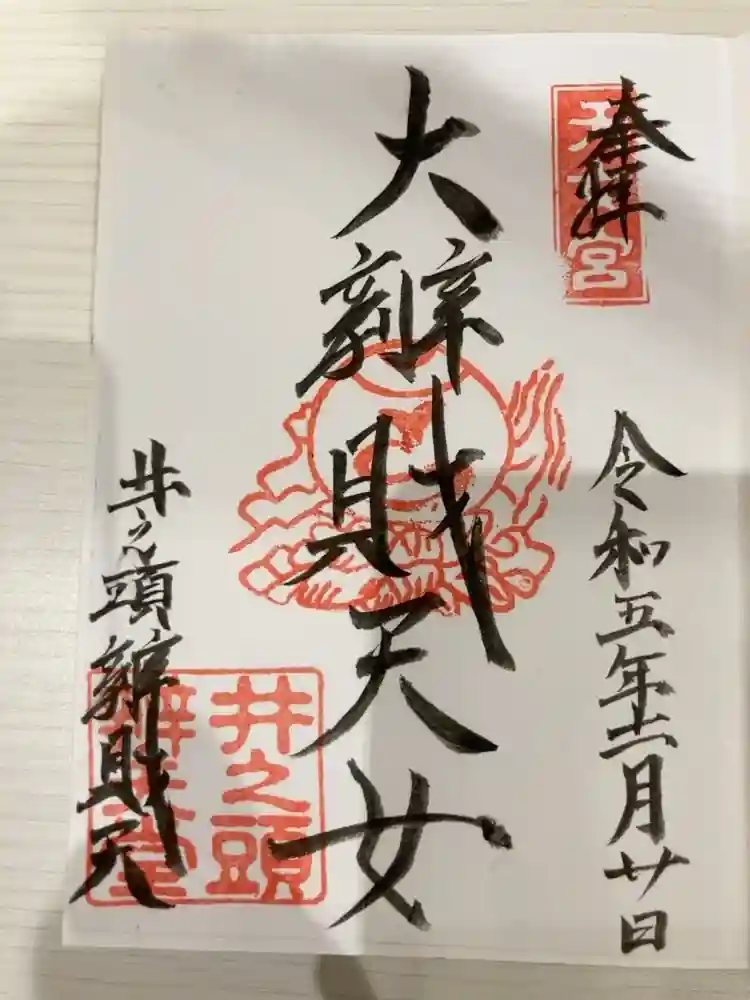 奉拝
令和五年十一月廿日
大辨財天女
井之頭辨財天
井之頭
辨天堂